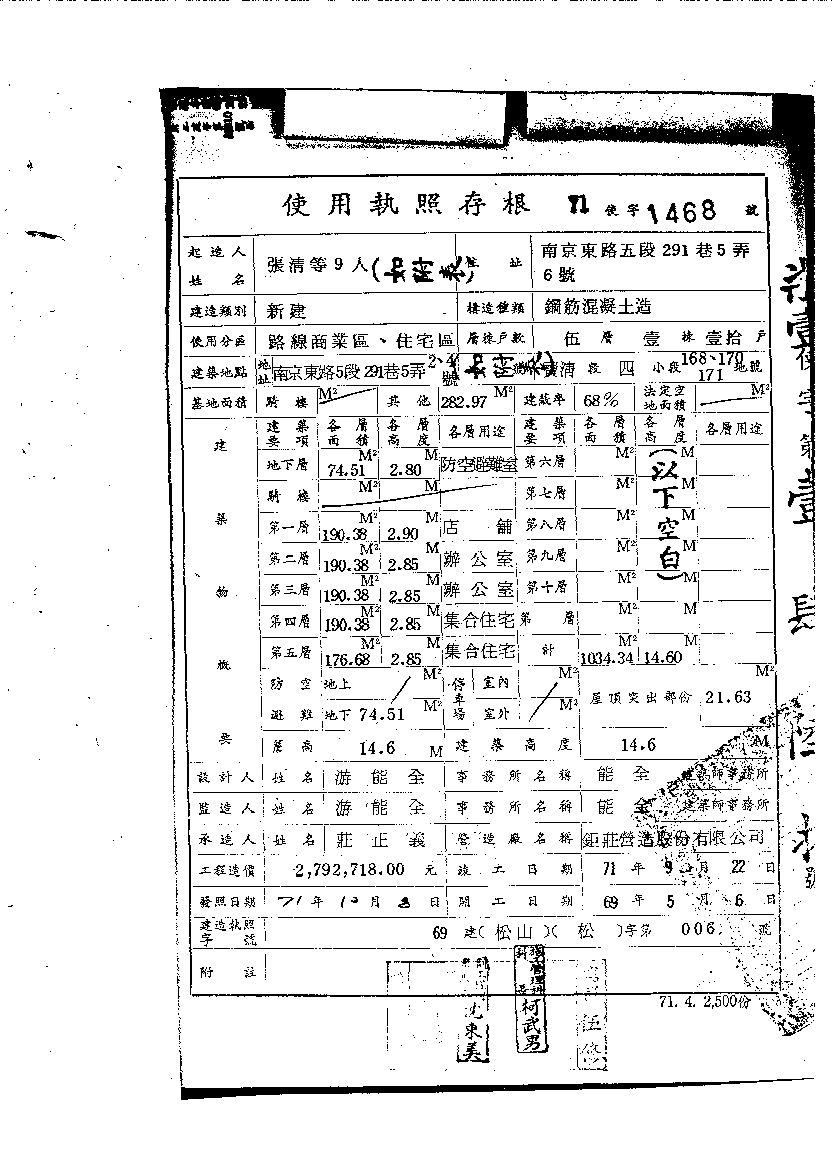 使用執照存根 71 使字 1468 號
起造人姓名 張清等9人(如附表) 住址 南京東路五段291巷5弄6號
建造類別 新建 構造種類 鋼筋混凝土造
使用分區 路線商業區、住宅區 層棟戶數 伍層 壹棟 壹拾戶
建築地點 地址 南京東路5段291巷5弄2、4號 段 四 小段 168、170 171 地號
基地面積 騎樓 M² 其他 282.97 M² 建蔽率 68% 法定空地面積 M²
建築物概要 建築要項 各層面積 各層高度 各層用途 建築要項 各層面積 各層高度 各層用途
地下層 74.51 M² 2.80 M 防空避難室 第六層 M² M
騎樓 M² M 第七層 M² M
第一層 190.38 M² 2.90 M 店舖 第八層 M² M
第二層 190.38 M² 2.85 M 辦公室 第九層 M² M
第三層 190.38 M² 2.85 M 辦公室 第十層 M² M
第四層 190.38 M² 2.85 M 集合住宅 第 層 M² M
第五層 176.68 M² 2.85 M 集合住宅 計 1034.34 M² 14.60 M
(以下空白)
防空避難 地上 M² 停車場 室內 M² 屋頂突出部份 21.63 M²
地下 74.51 M² 室外 M²
簷高 14.6 M 建築高度 14.6 M
設計人 姓名 游能全 事務所名稱 能全 建築師事務所
監造人 姓名 游能全 事務所名稱 能全 建築師事務所
承造人 姓名 莊正義 營造廠名稱 鉅莊營造股份有限公司
工程造價 2,792,718.00 元 竣工日期 71年9月22日
發照日期 71年10月 日 開工日期 69年5月6日
建造執照字號 69建(松山)(松)字第 006 號
附註
71.4.2,500份
沈東美
柯武男